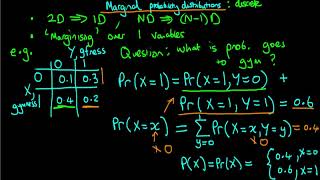 Marginal probability distributions : discrete
• 2D ⇒ 1D , ND ⇒ (N-1)D
• 'Marginising' over 1 variables
e.g. Y, gfness Question: what is prob. goes
0 1 to gym ?
X, 0 0.1 0.3 Pr(X=1) = Pr(X=1, Y=0) +
gymness 1 0.4 0.2 Pr(X=1, Y=1) = 0.6
Pr(X=x) = Σ Pr(X=x, Y=y) = 0.4
y=0
0 0
P(X) = Pr(X) = { 0.4, x=0
0.6, x=1